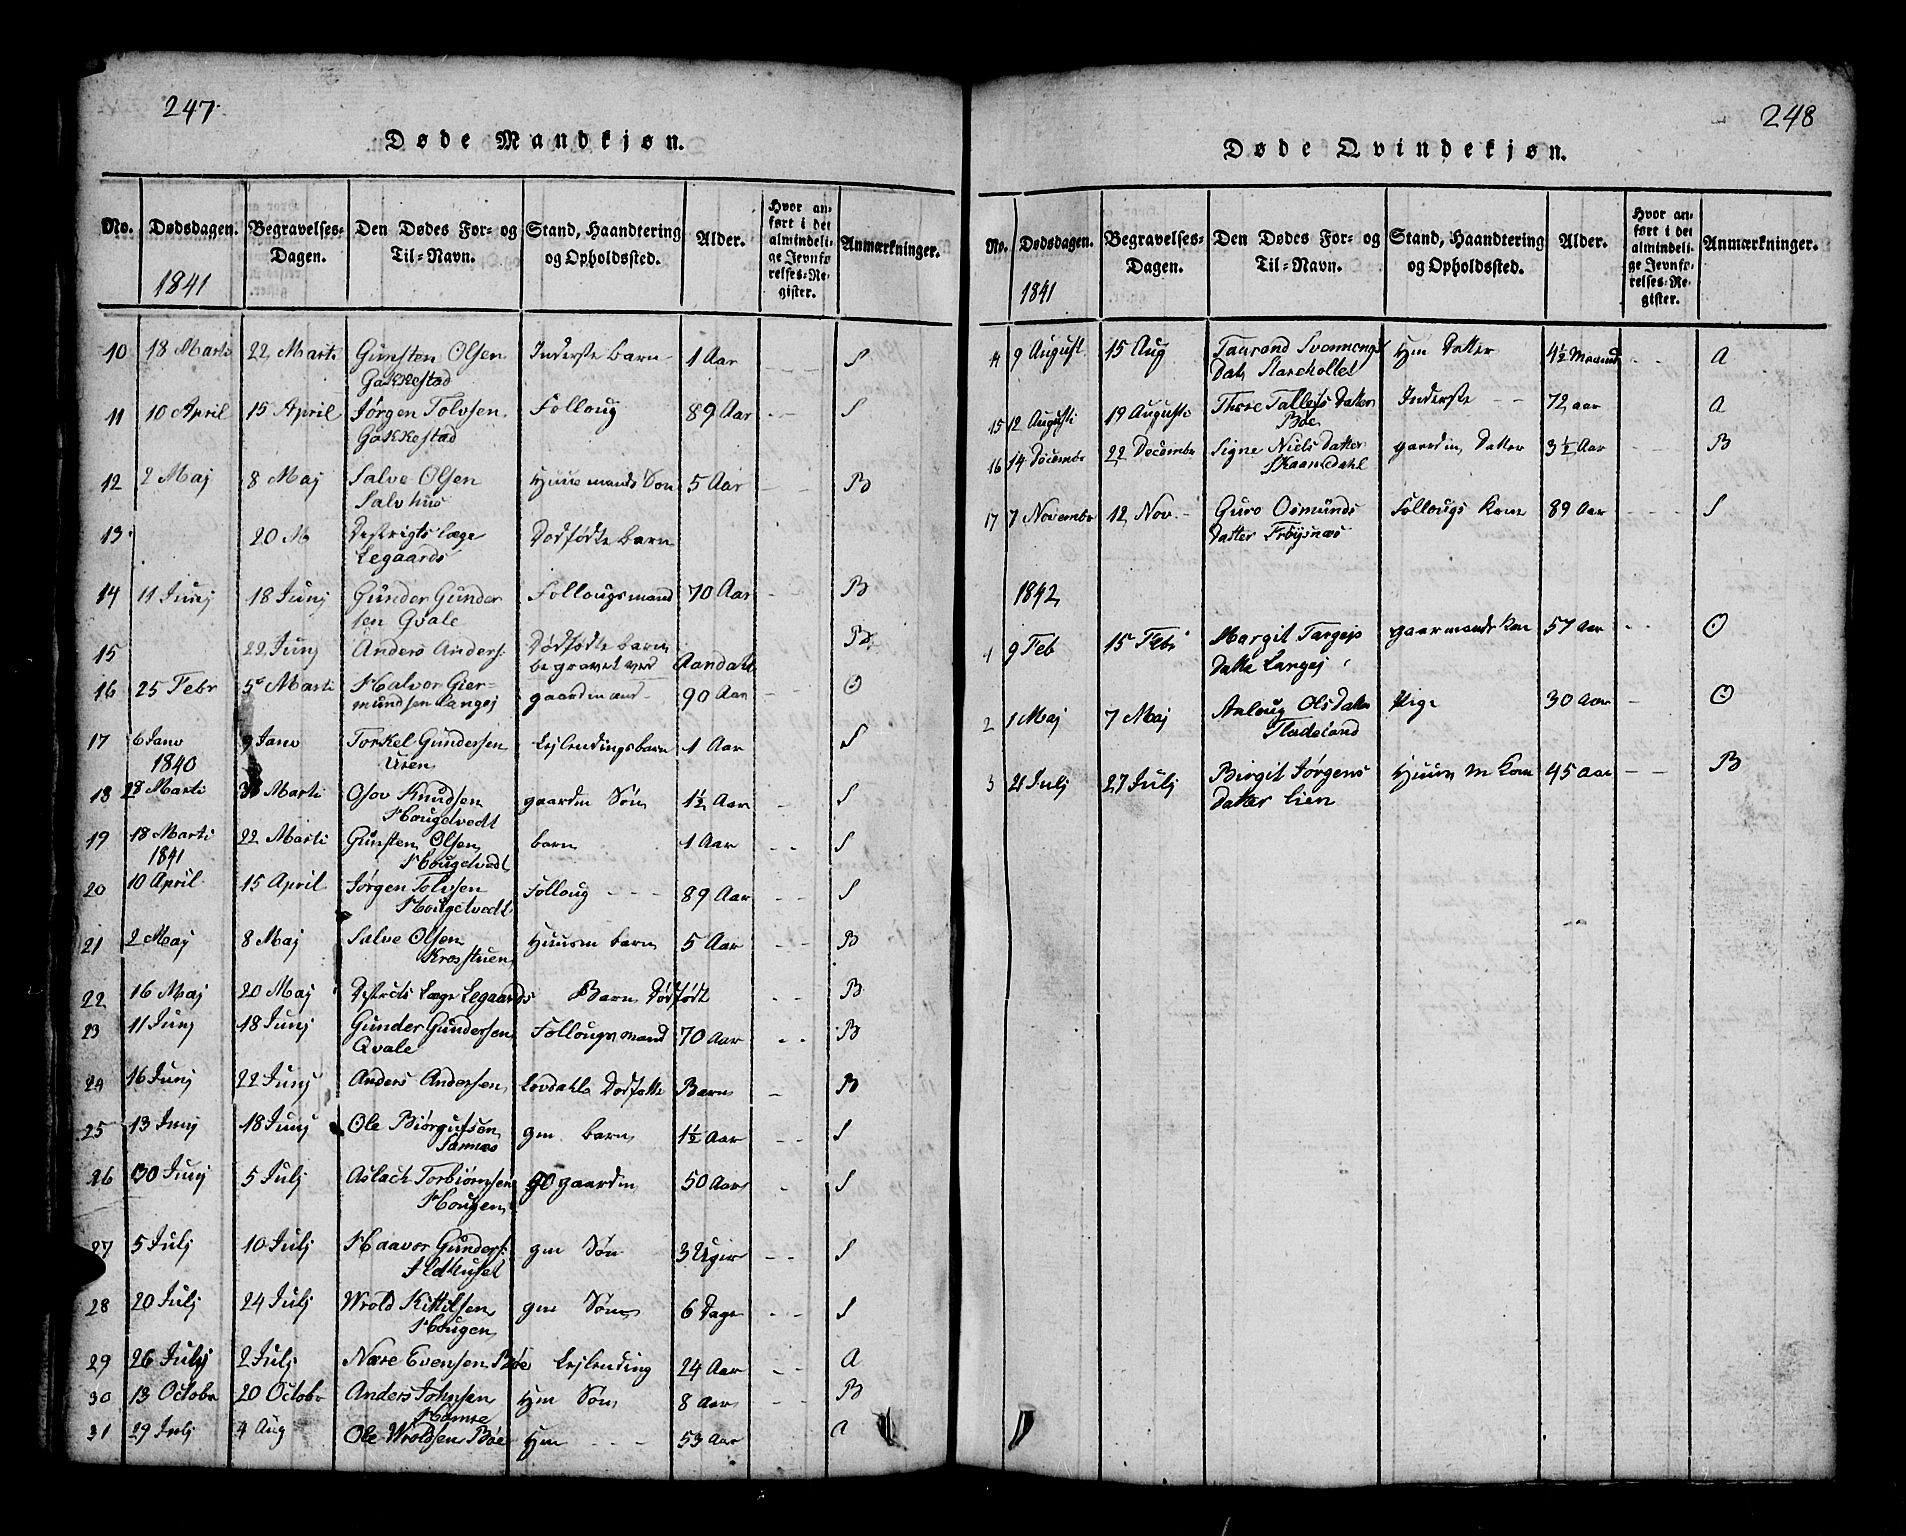 247.
Døde Mandkjøn.
No. Dødsdagen. Begravelses-Dagen. Den Dødes For- og Til-Navn. Stand, Haandtering og Opholdssted. Alder. Hvor anført i det almindelige Jevnførelses-Register. Anmærkninger.
1841
10 18 Marti 22 Marti Gunsten Olsen Inderste barn 1 Aar S
Gakkestad
11 10 April 15 April Jørgen Tolvsen Folloug 89 Aar S
Gakkestad
12 2 Maj 8 Maj Salve Olsen Huusmands Søn 5 Aar B
Salvhus
13 20 M Destrigts læge Dodfødte barn
Legaards
14 11 Junj 18 Junj Gunder Gunder Follougsmand 70 Aar B
sen Qvale
15 22 Junj Anders Anders. Dødfødte barn
begravet ved Aandahl
16 25 Febr 5 Marti Halvor Gier- gaardmand 90 Aar O
mundsen Langej
17 6 Janv 9 Janv Torkel Gundersen Lejlendingsbarn 1 Aar S
1840 Uren
18 28 Marti Marti Osov Knudsen gaardm Søn 1½ Aar S
Hougetvedt
19 18 Marti 22 Marti Gunsten Olsen barn 1 Aar S
1841 Hougetvedt
20 10 April 15 April Jørgen Tolvsen Folloug - - - 89 Aar S
Hougetvedt
21 2 Maj 8 Maj Salve Olsen Huusm barn 5 Aar B
Krosstuen
22 16 Maj 20 Maj Destrcts Læge Legaards Barn Dødfødt B
23 11 Junj 18 Junj Gunder Gundersen Follougsmand 70 Aar B
Qvale
24 16 Junj 22 Junj Anders Andersen Lovdahls Dodføtte Barn B
25 13 Junj 18 Junj Ole Biørgufsen gm barn 1½ Aar S
Sannes
26 30 Junj 5 Julj Aslach Torbiørnsen gaardm 50 Aar S
Hougen
27 5 Julj 10 Julj Haavor Gunders. gm Søn 3 Uger S
Ildhuset
28 20 Julj 24 Julj Wrold Kittilsen gm Søn 6 Dage S
Hougen
29 26 Julj 2 Julj Nare Evensen Bøe Lejlending 24 Aar A
30 13 Octobr 20 Octobr Anders Johnsen Hm Søn 8 Aar B
Homre
31 29 Julj 4 Aug Ole Wroldsen Bøe Hm - - - 53 Aar
248
Døde Qvindekjøn.
No. Dødsdagen. Begravelses-Dagen. Den Dødes For- og Til-Navn. Stand, Haandtering og Opholdssted. Alder. Hvor anført i det almindelige Jevnførelses-Register. Anmærkninger.
1841
14 9 August 15 Aug Taurand Hm Datter 4½ Maaned A
Dat.
15 12 Augusti 19 Augusti Thore Tallejs Datter Inderste - - 72 aar A
Bøe
16 14 Decembr 22 Decembr Signe Niels Datter gaardm Datter 3½ Aar B
Skaansdahl
17 7 Novembr 12 Nov. Guro Osmunds Follougs Kone 89 Aar S
Datter Frøysnæs
1842,
1 9 Feb 15 Feb Margit Targejs gaarmands Kone 57 Aar O
Datte Langej
2 1 Maj 7 Maj Aaloug Olsdatte Pige 30 Aar O
Fladeland
3 21 Julj 27 Julj Birgit Jørgens Huus m Kone 45 Aar B
datter Lien